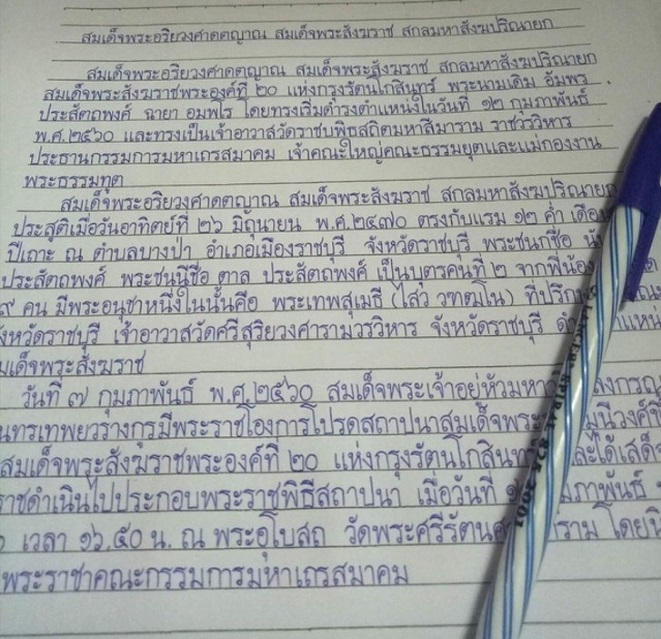 สมเด็จพระอริยวงศาคตญาณ สมเด็จพระสังฆราช สกลมหาสังฆปริณายก
สมเด็จพระอริยวงศาคตญาณ สมเด็จพระสังฆราช สกลมหาสังฆปริณายก
สมเด็จพระสังฆราชพระองค์ที่ ๒๐ แห่งกรุงรัตนโกสินทร์ พระนามเดิม อัมพร
ประสัตถพงศ์ ฉายา อมฺพโร โดยทรงเริ่มดำรงตำแหน่งในวันที่ ๑๒ กุมภาพันธ์
พ.ศ.๒๕๖๐ และทรงเป็นเจ้าอาวาสวัดราชบพิธสถิตมหาสีมาราม ราชวรวิหาร
ประธานกรรมการมหาเถรสมาคม เจ้าคณะใหญ่คณะธรรมยุตและแม่กองงาน
พระธรรมทูต
สมเด็จพระอริยวงศาคตญาณ สมเด็จพระสังฆราช สกลมหาสังฆปริณายก
ประสูติเมื่อวันอาทิตย์ที่ ๒๖ มิถุนายน พ.ศ.๒๔๗๐ ตรงกับแรม ๑๒ ค่ำ เดือน
ปีเถาะ ณ ตำบลบางป่า อำเภอเมืองราชบุรี จังหวัดราชบุรี พระชนกชื่อ
ประสัตถพงศ์ พระชนนีชื่อ ตาล ประสัตถพงศ์ เป็นบุตรคนที่ ๒ จากพี่น้อง
๙ คน มีพระอนุชาหนึ่งในนั้นคือ พระเทพสุเมธี (ไสว วฑฺฒโน) ที่ปรึกษา
จังหวัดราชบุรี เจ้าอาวาสวัดศรีสุริยวงศารามวรวิหาร จังหวัดราชบุรี
สมเด็จพระสังฆราช
วันที่ ๗ กุมภาพันธ์ พ.ศ.๒๕๖๐ สมเด็จพระเจ้าอยู่หัวมหา ลงกรณ
นทรเทพยวรางกูรมีพระราชโองการโปรดสถาปนาสมเด็จพระ มุนีวงศ์
สมเด็จพระสังฆราชพระองค์ที่ ๒๐ แห่งกรุงรัตนโกสินทร์ และได้เสด็จ
ราชดำเนินไปประกอบพระราชพิธีสถาปนา เมื่อวันที่ มภาพันธ์
เวลา ๑๖.๕๐ น. ณ พระอุโบสถ วัดพระศรีรัตนศาสดาราม โดย
พระราชาคณะกรรมการมหาเถรสมาคม